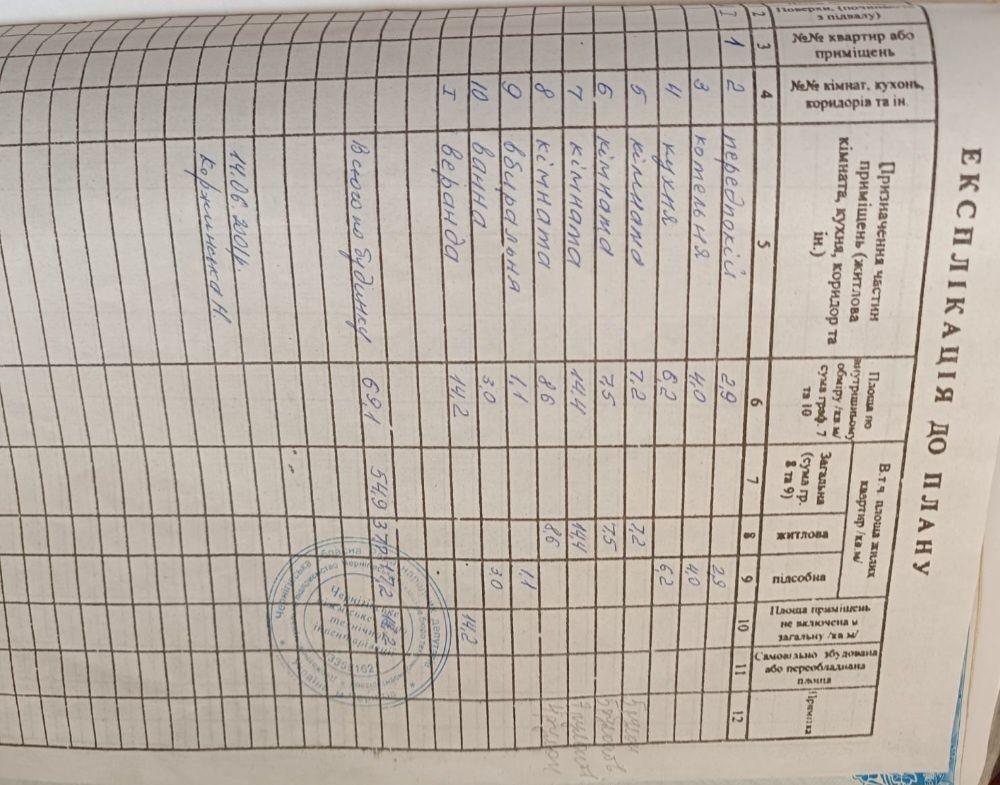 ЕКСПЛІКАЦІЯ ДО ПЛАНУ
з підвалу)
№№ квартир або приміщень
№№ кімнат, кухонь, коридорів та ін.
Призначення частин приміщень (житлова кімната, кухня, коридор та ін.)
Площа по внутрішньому обміру /кв.м/ сума граф. 7 та 10
В.т.ч. площа жилих квартир /кв.м/
Загальна (сума гр. 8 та 9)
житлова
підсобна
Площа приміщень не включена в загальну /кв.м/
Самовільно збудована або переобладнана площа
Примітка
2 3 4 5 6 7 8 9 10 11 12
1 2 передпокій 2,9 2,9
3 котельня 4,0 4,0
4 кухня 6,2 6,2
5 кімната 7,2 7,2
6 кімната 7,5 7,5
7 кімната 14,4 14,4
8 кімната 8,6 8,6
9 вбиральня 1,1 1,1
10 ванна 3,0 3,0
I веранда 14,2 14,2
Всього по будинку 69,1 54,9 37,7 17,2 14,2
14.06.2011р.
Коржинська Н.
Чернігівське
міжміське бюро
технічної
інвентаризації
3358162